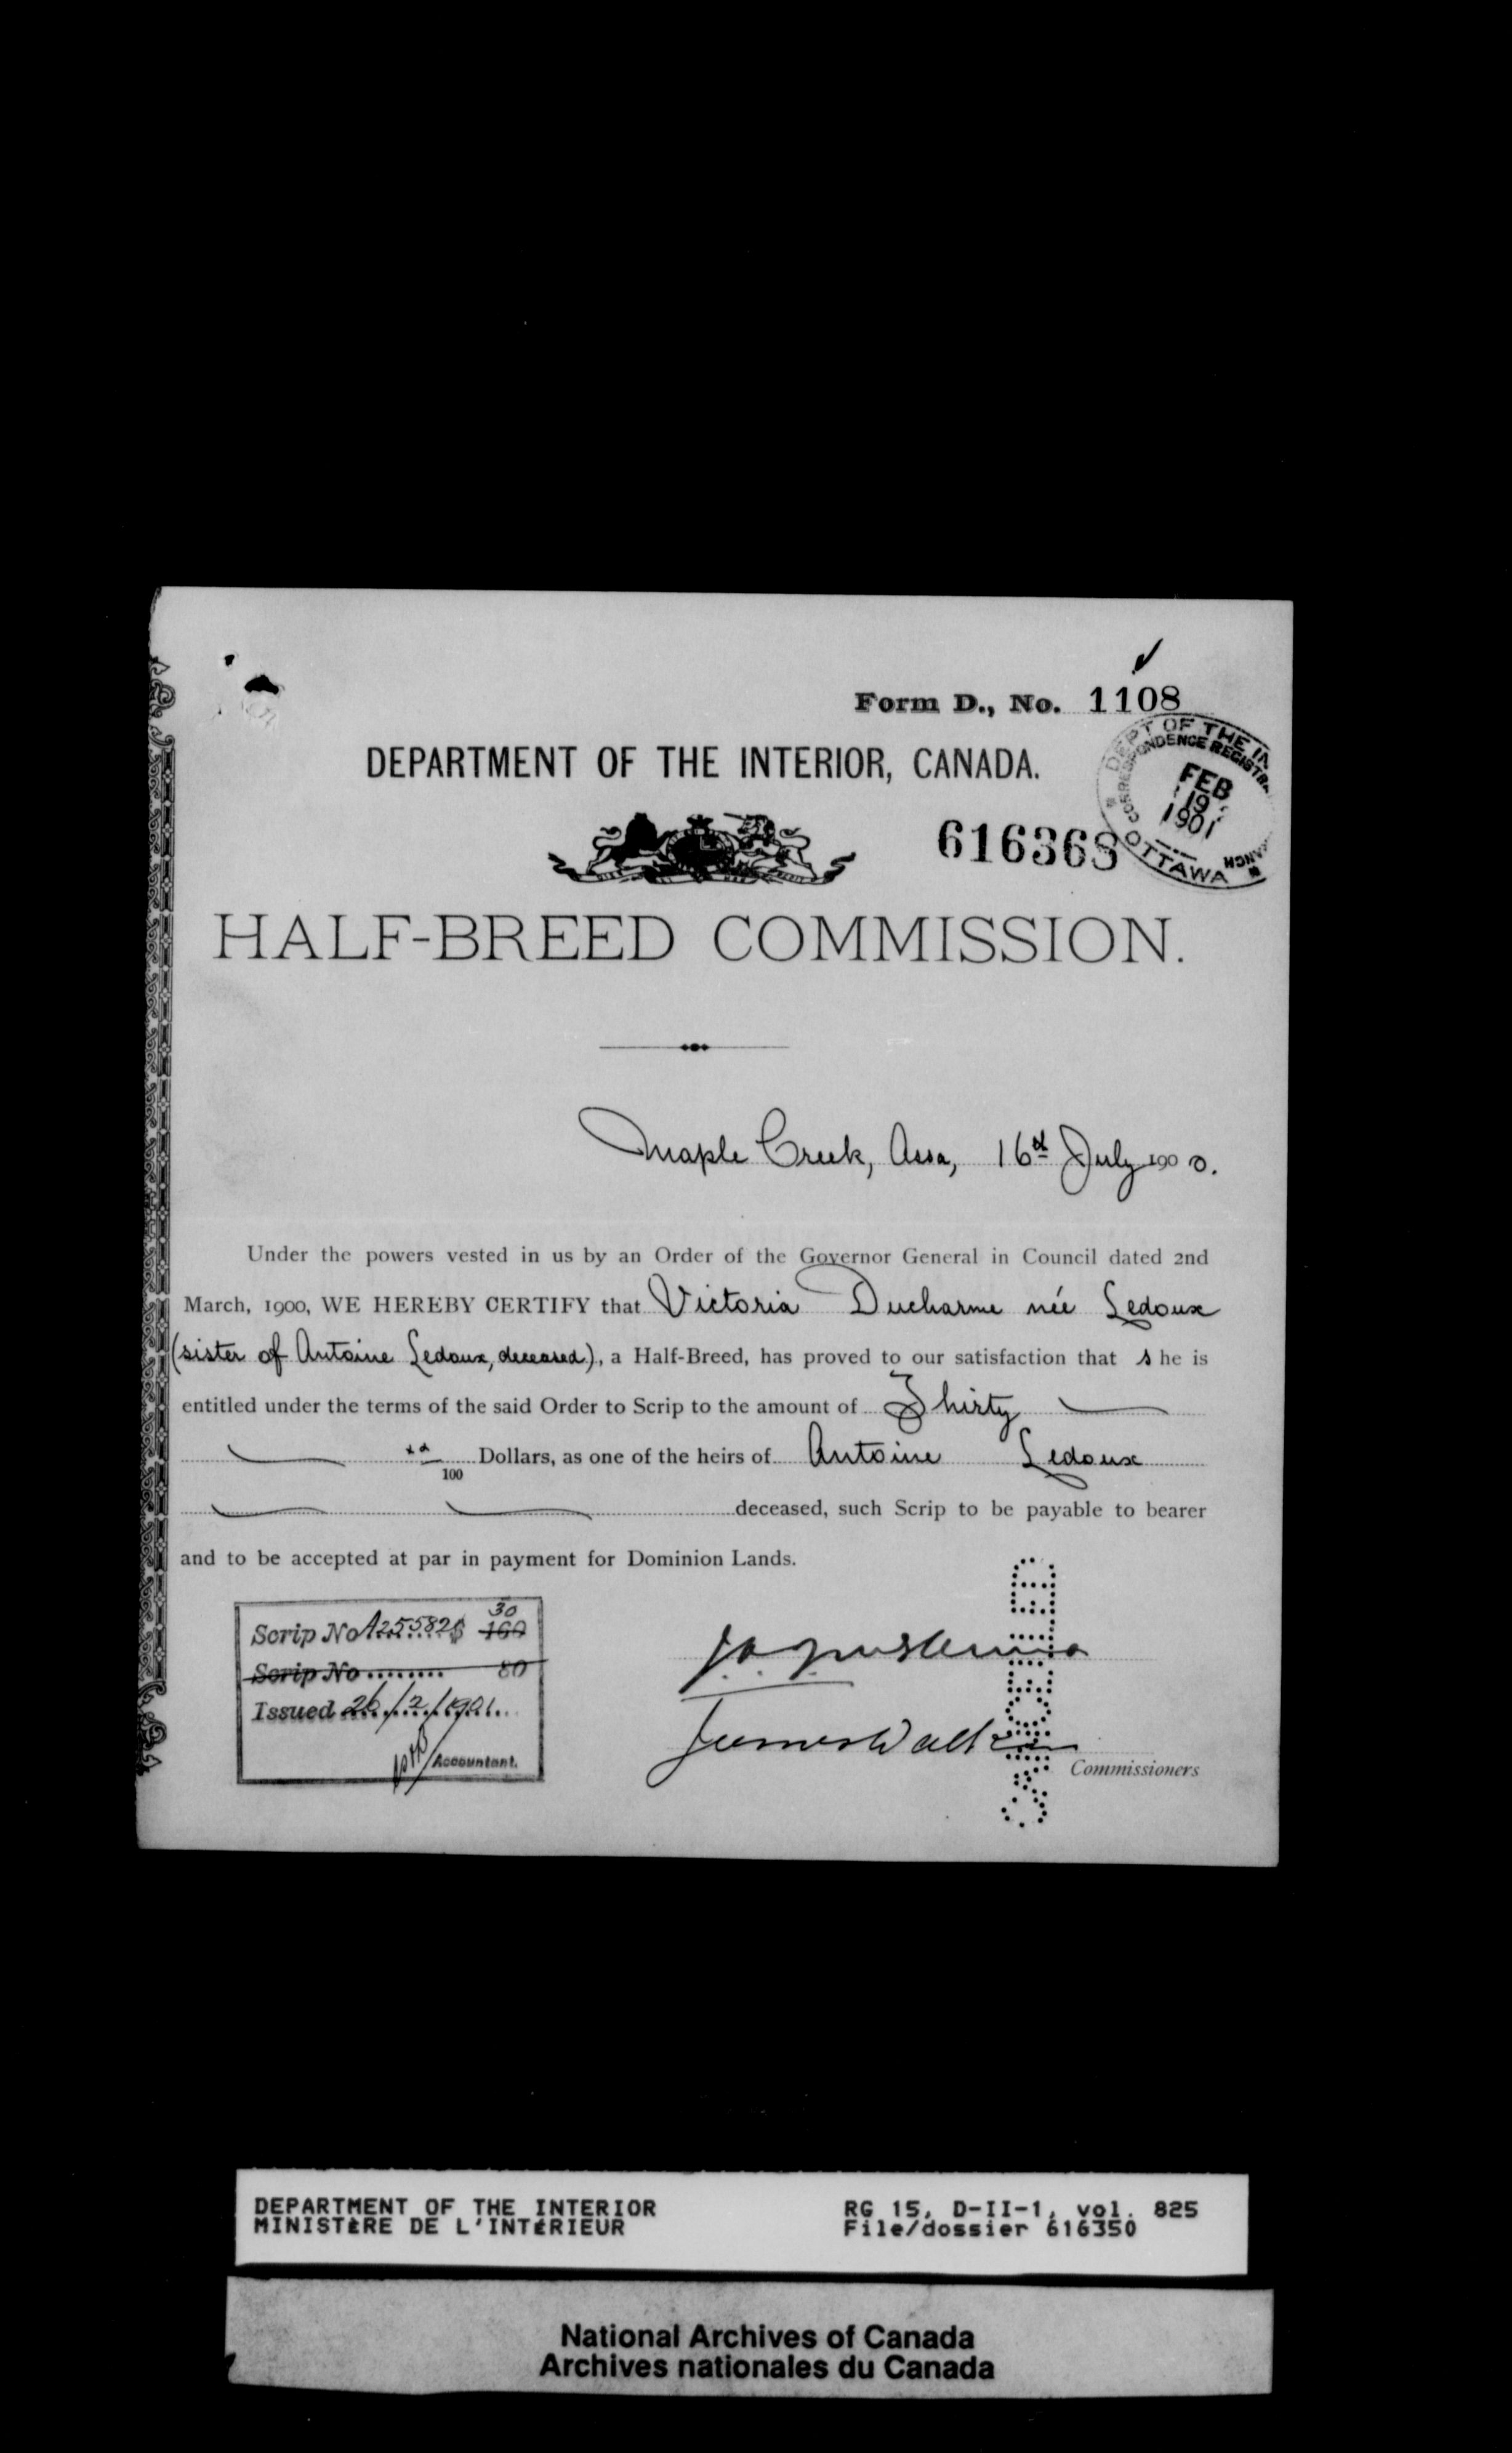 Form D., No. 1108
DEPARTMENT OF THE INTERIOR, CANADA.
DEPT OF THE IN
CORRESPONDENCE REGISTRA
FEB
19
1901
OTTAWA
616368
HALF-BREED COMMISSION.
Maple Creek, Assa, 16th July 1900.
Under the powers vested in us by an Order of the Governor General in Council dated 2nd
March, 1900, WE HEREBY CERTIFY that Victoria Ducharme née Ledoux
(sister of Antoine Ledoux, deceased), a Half-Breed, has proved to our satisfaction that she is
entitled under the terms of the said Order to Scrip to the amount of Thirty
xx/100 Dollars, as one of the heirs of Antoine Ledoux
deceased, such Scrip to be payable to bearer
and to be accepted at par in payment for Dominion Lands.
30
Scrip No A255826 160
Scrip No ........ 80
Issued 26/2/1901.
Accountant.
James Walker
Commissioners
DEPARTMENT OF THE INTERIOR RG 15, D-II-1, vol. 825
MINISTÈRE DE L'INTÉRIEUR File/dossier 616350
National Archives of Canada
Archives nationales du Canada